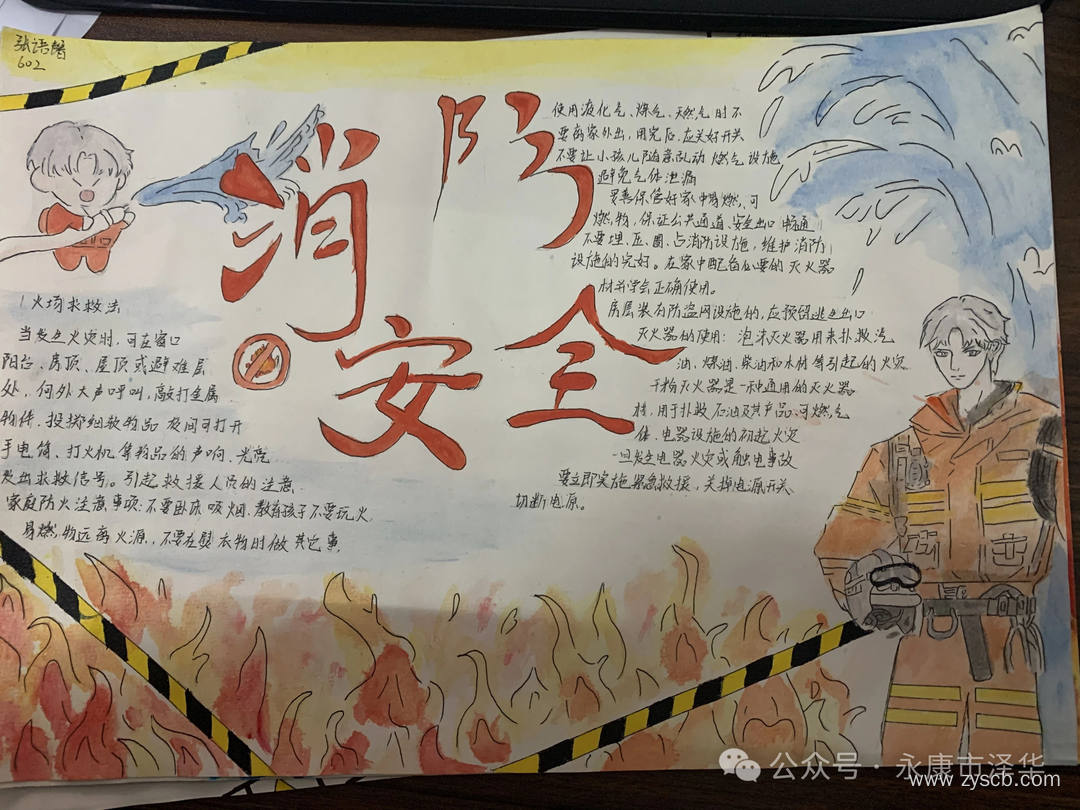 张语馨
602
消防
安全
1火场求救法
当发生火灾时,可在窗口
阳台、房顶、屋顶或避难层
处,向外大声呼叫,敲打金属
物件、投掷细软物品 夜间可打开
手电筒、打火机等物品的声响、光亮
发出求救信号。引起救援人员的注意
家庭防火注意事项:不要卧床吸烟.教育孩子不要玩火
易燃物远离火源,不要在熨衣物时做其它事.
使用液化气、煤气、天然气时不
要离家外出,用完后,应关好开关
不要让小孩儿随意乱动燃气设施
避免气体泄漏
妥善保管好家中易燃、可
燃物,保证公共通道、安全出口畅通
不要埋、压、圈、占消防设施,维护消防
设施的完好。在家中配备必要的灭火器
材并学会正确使用。
房屋装有防盗网设施的,应预留逃生出口
灭火器的使用:泡沫灭火器用来扑救汽
油、煤油、柴油和木材等引起的火灾
干粉灭火器是一种通用的灭火器
材,用于扑救石油及其产品、可燃气
体、电器设施的初起火灾
一旦发生电器火灾或触电事故
要立即实施紧急救援,关掉电源开关
切断电源。
公众号·永康市泽华
www.zyscb.com